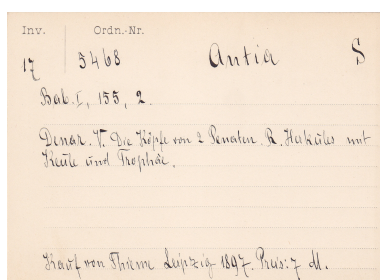 Inv. Ordn.-Nr.
17 5468 Antia S
Bab. I, 155, 2.
Denar. V. Die Köpfe von 2 Penaten. R. Herkules mit
Keule und Trophäe.
Kauf von Thieme Leipzig 1897. Preis: 7 M.